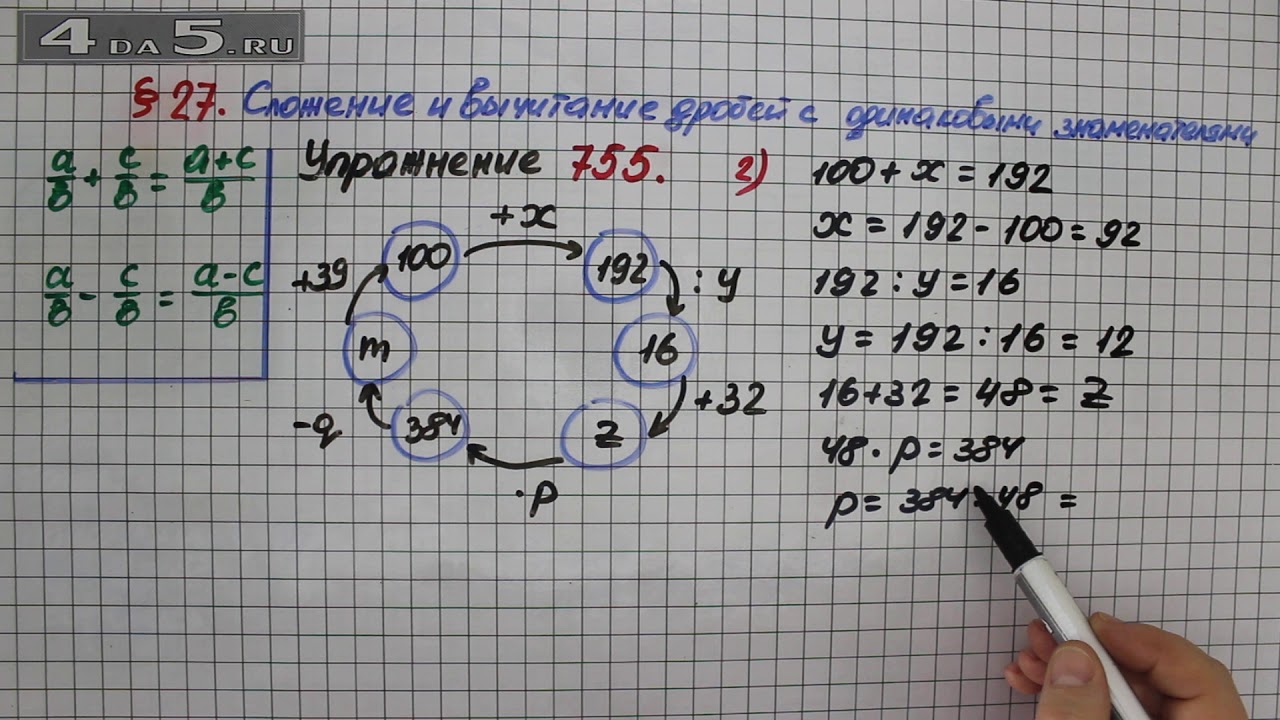 4DA5.RU
§ 27. Сложение и вычитание дробей с одинаковыми знаменателями
a/в + c/в = a+c/в
a/в - c/в = a-c/в
Упражнение 755. 2)
100
+x
192
: y
16
+32
z
·p
384
-q
m
+39
100 + x = 192
x = 192 - 100 = 92
192 : y = 16
y = 192 : 16 = 12
16+32 = 48 = z
48 · p = 384
p = 384 : 48 =